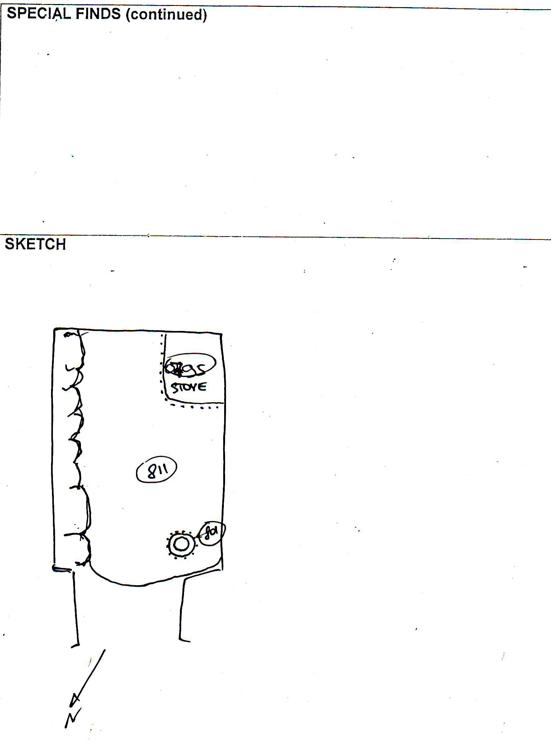 SPECIAL FINDS (continued)
SKETCH
STOVE
811
801
N